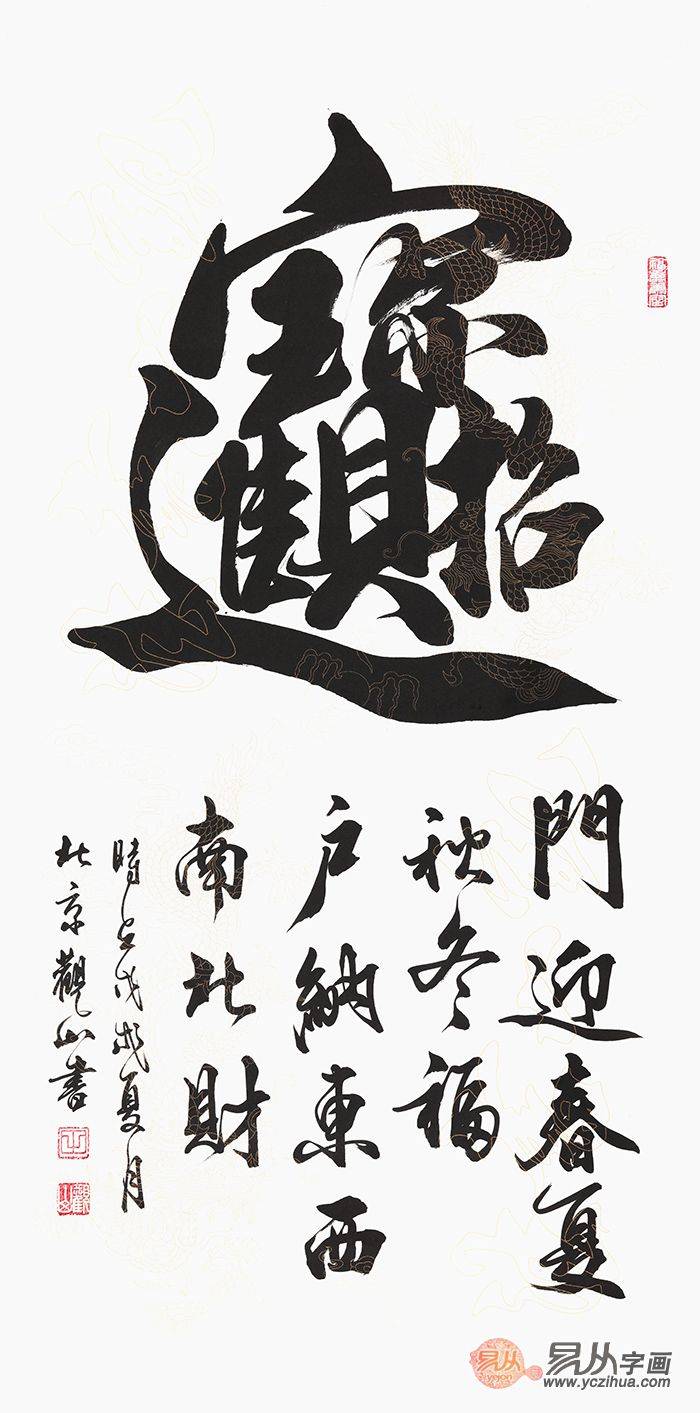 招財進寶
門迎春夏
秋冬福
戶納東西
南北財
時在戊戌夏月
北京觀山書
易从
yejon
易从字画
www.yczihua.com